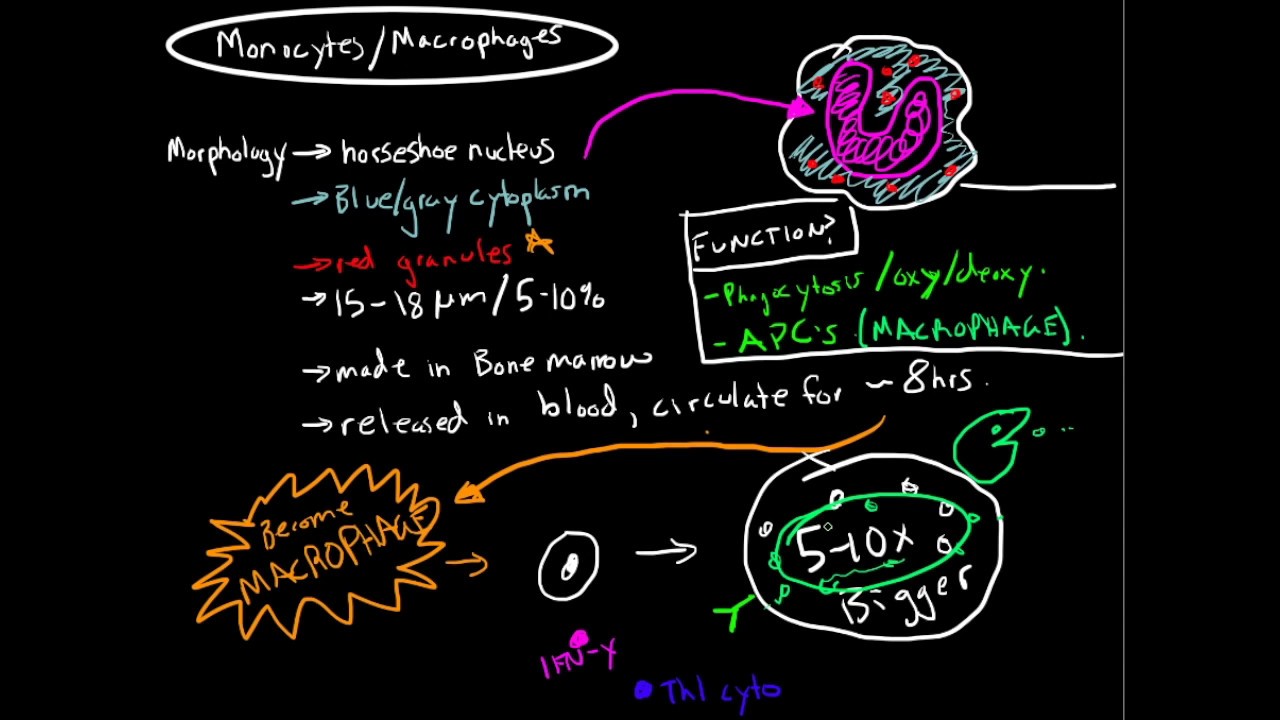 Monocytes/Macrophages
Morphology → horseshoe nucleus
→ Blue/gray cytoplasm
→ red granules
→ 15-18 μm / 5-10%
→ made in Bone marrow
→ released in blood, circulate for ~ 8hrs.
FUNCTION?
- Phagocytosis /oxy/deoxy.
- APC's (MACROPHAGE).
Become
MACROPHAGE
5-10x
Bigger
IFN-γ
Th1 cyto